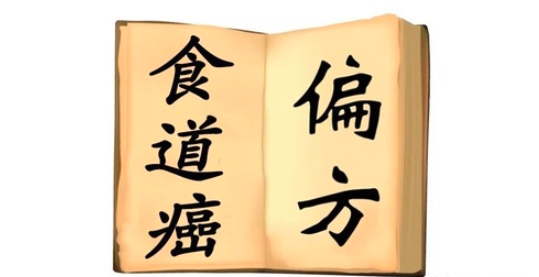 食道癌
偏方